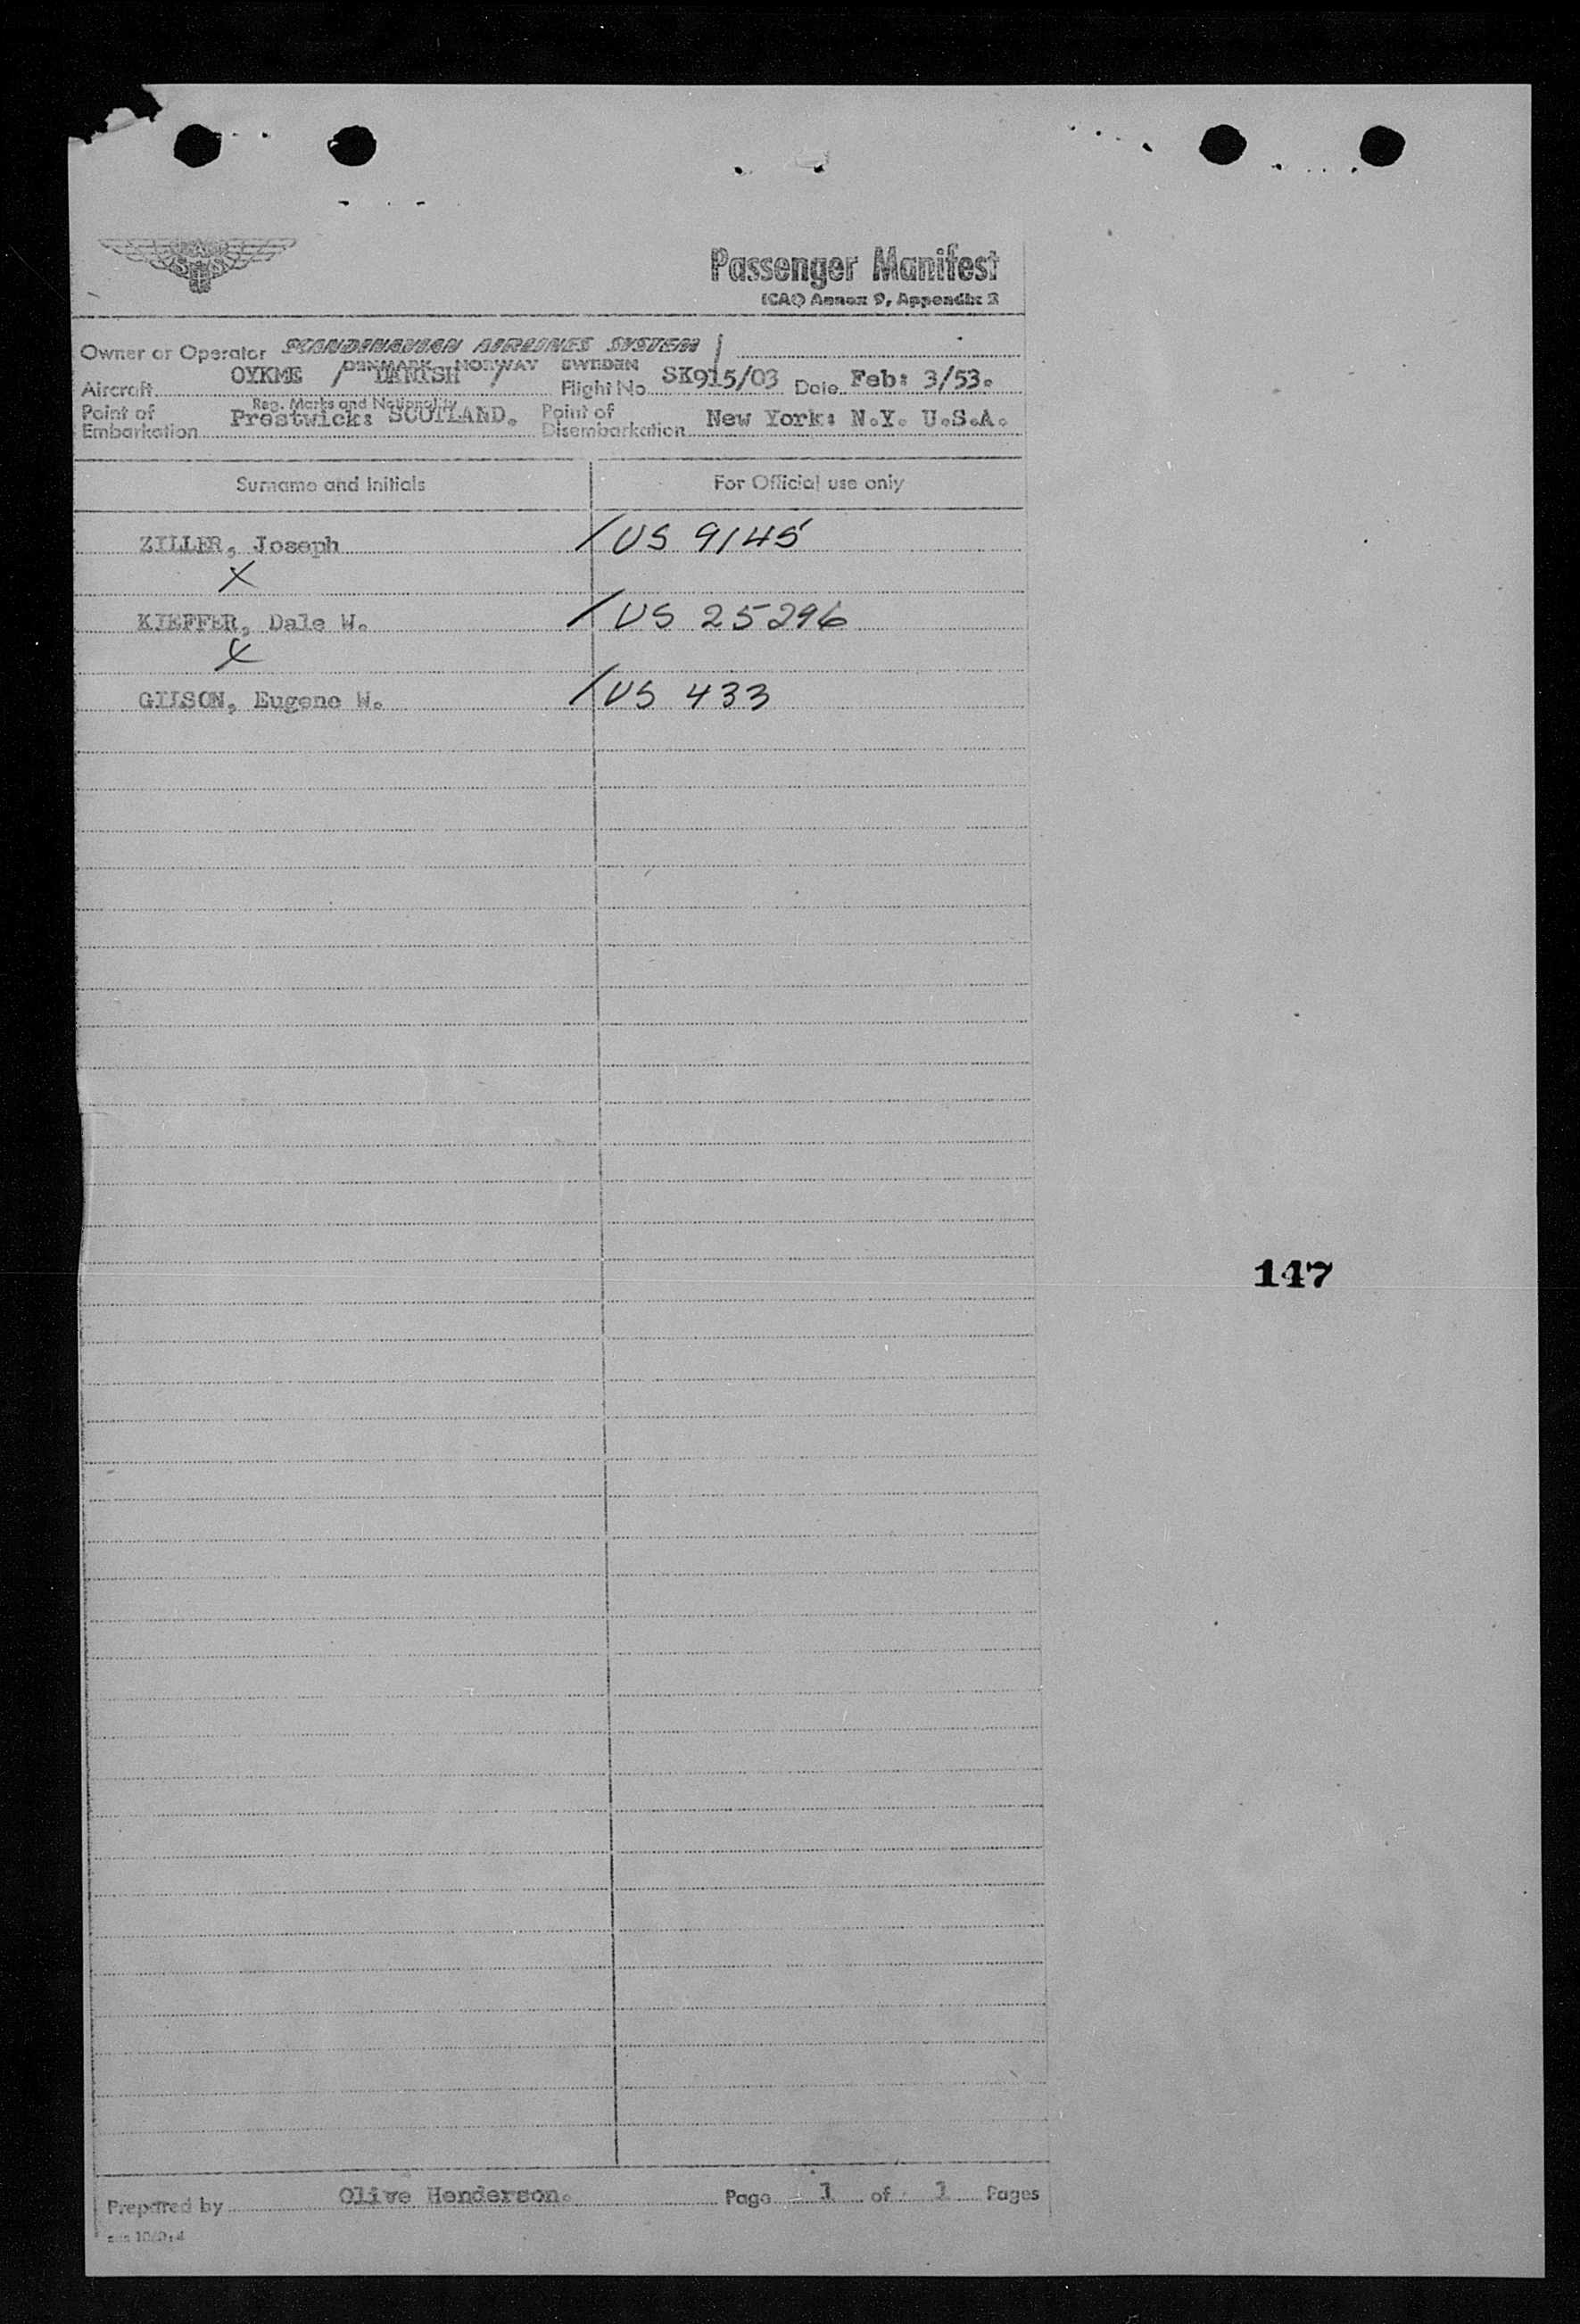 Passenger Manifest
ICAO Annex 9, Appendix 2
Owner or Operator SCANDINAVIAN AIRLINES SYSTEM
DENMARK NORWAY SWEDEN
Aircraft OYKME / DANISH / Flight No. SK915/03 Date Feb: 3/53.
Reg. Marks and Nationality
Point of Embarkation Prestwick: SCOTLAND. Point of Disembarkation New York: N.Y. U.S.A.
Surname and Initials For Official use only
ZILLER, Joseph / US 9145
X
KIEFFER, Dale W. / US 25296
X
GILSON, Eugene W. / US 433
147
Prepared by Olive Henderson. Page 1 of 1 Pages